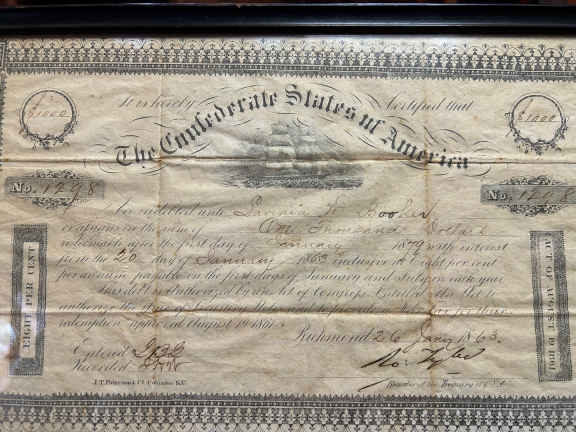 It is hereby Certified that
The Confederate States of America
$1000
$1000
No. 1298
No. 1298
be indebted unto Booker
or assigns in the sum of One Thousand Dollars
redeemable after the first day of January 1879 with interest
from the 20 day of January 1863 inclusive at Eight per cent
per annum payable on the first days of January and July in each year
This debt is authorized by an Act of Congress Entitled An Act to
authorize the issue of Treasury Notes and to provide a War Tax for their
redemption approved August 19 1861
EIGHT PER CENT
ACT OF AUGUST 19 1861
Richmond 26 Jany 1863.
Entered
Recorded
Ro. Tyler
Register of the Treasury
J.T. Paterson & Co Columbia S.C.